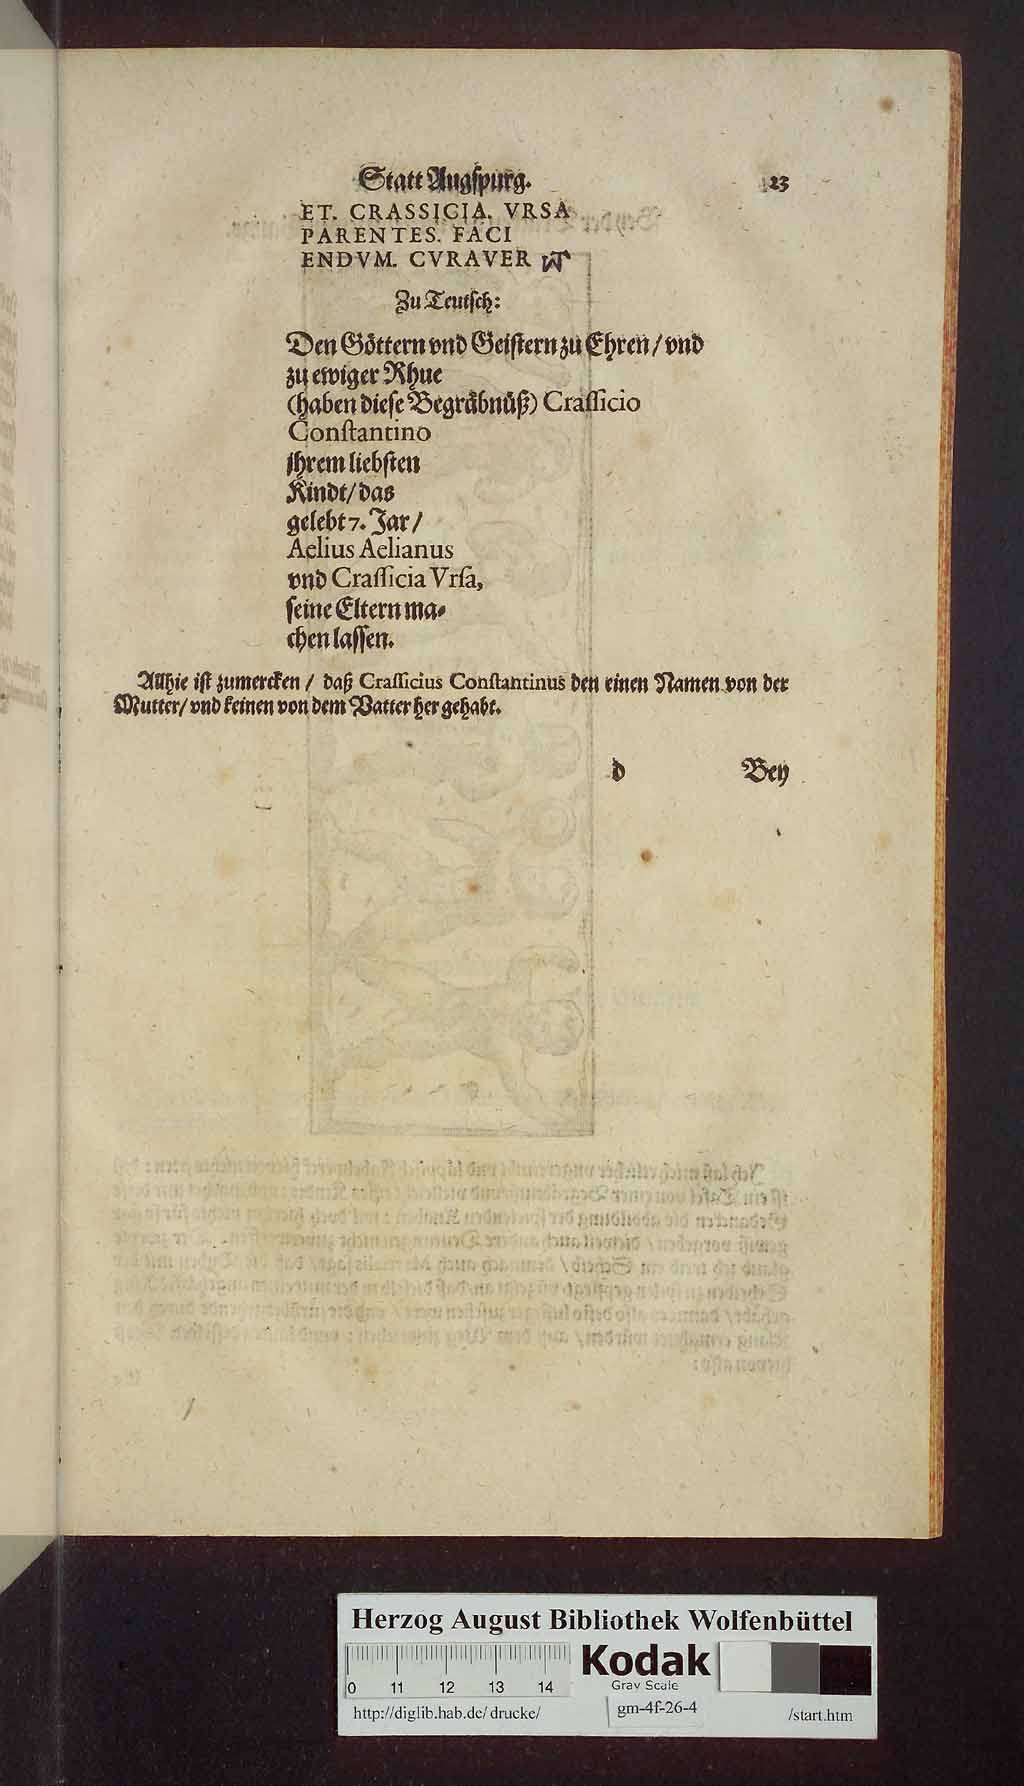 Statt Augſpurg.
23
ET. CRASSICIA. VRSA
PARENTES. FACI
ENDVM. CVRAVER
Zu Teutſch:
Den Göttern vnd Geiſtern zu Ehren / vnd
zu ewiger Rhue
(haben dieſe Begräbnüß) Craſſicio
Conſtantino
jhrem liebſten
Kindt / das
gelebt 7. Jar /
Aelius Aelianus
vnd Craſſicia Vrſa,
ſeine Eltern ma⸗
chen laſſen.
Allhie iſt zumercken / daß Craſſicius Conſtantinus den einen Namen von der
Mutter / vnd keinen von dem Vatter her gehabt.
d
Bey
Herzog August Bibliothek Wolfenbüttel
Kodak
Gray Scale
0 11 12 13 14
http://diglib.hab.de/drucke/
gm-4f-26-4
/start.htm